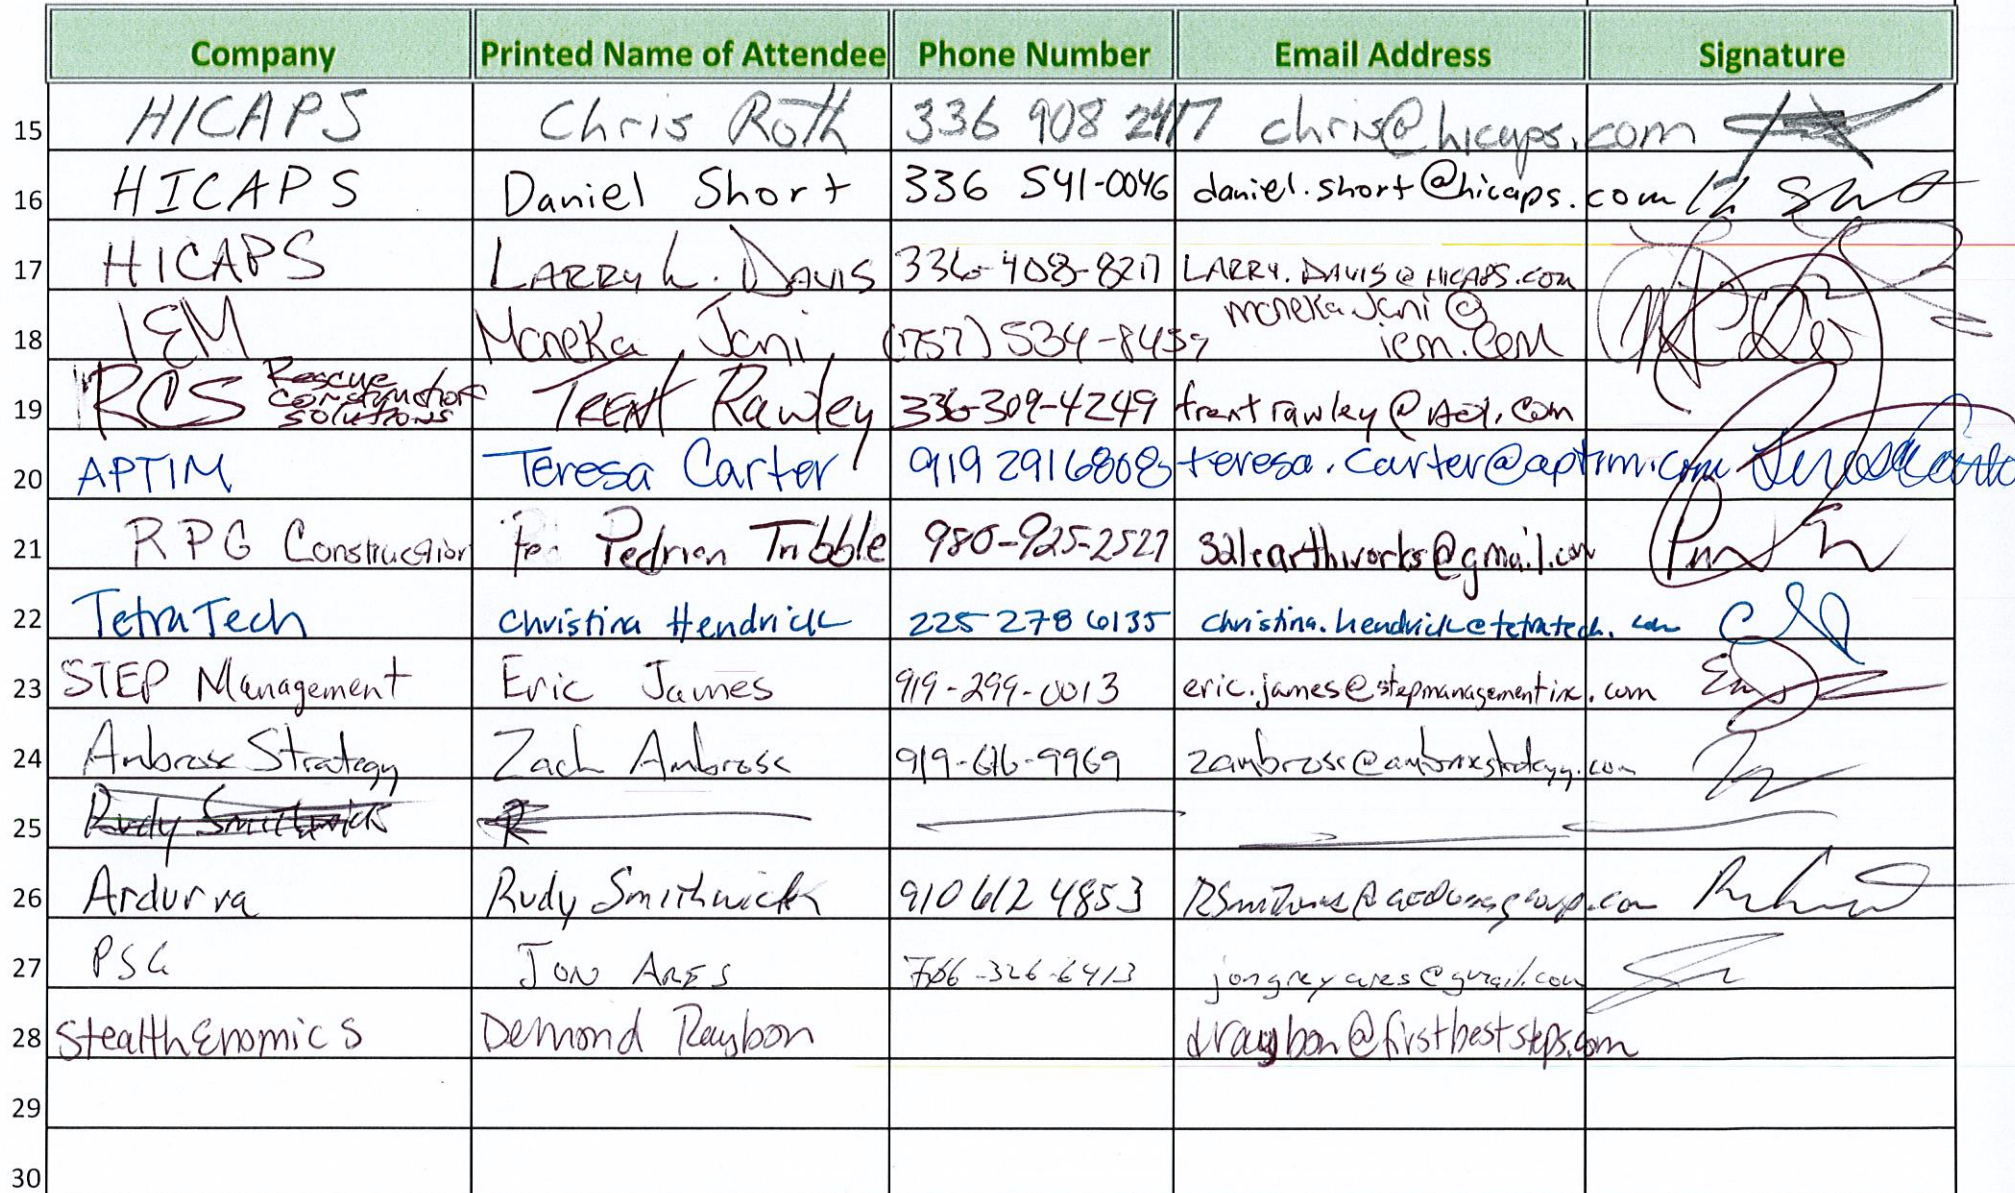 Company Printed Name of Attendee Phone Number Email Address Signature
15 HICAPS Chris Roth 336 908 2417 chris@hicaps.com
16 HICAPS Daniel Short 336 541-0046 daniel.short@hicaps.com
17 HICAPS LARRY L. DAVIS 336-408-8217 LARRY.DAVIS@HICAPS.COM
18 IEM Moneka Jani (757) 534-8459 moneka.jani@
iem.com
19 RCS Rescue Construction Solutions Trent Rawley 336-309-4249 trentrawley@AOL.com
20 APTIM Teresa Carter 919 2916808 teresa.carter@aptim.com Teresa Carter
21 RPG Construction Pedrian Tribble 980-925-2527 @gmail.com
22 TetraTech Christina Hendrick 225 278 6135 christina.hendrick@tetratech.com
23 STEP Management Eric James 919-299-0013 eric.james@stepmanagementinc.com
24 Ambrose Strategy Zach Ambrose 919-616-9969 zambrose@ambrosestrategy.com
25 Rudy Smithwick R
26 Ardurra Rudy Smithwick 910 612 4853
27 PSG JON ARES jongreyares@gmail.com
28 StealthEnomics Demond Raybon draybon@firstbeststeps.com
29
30